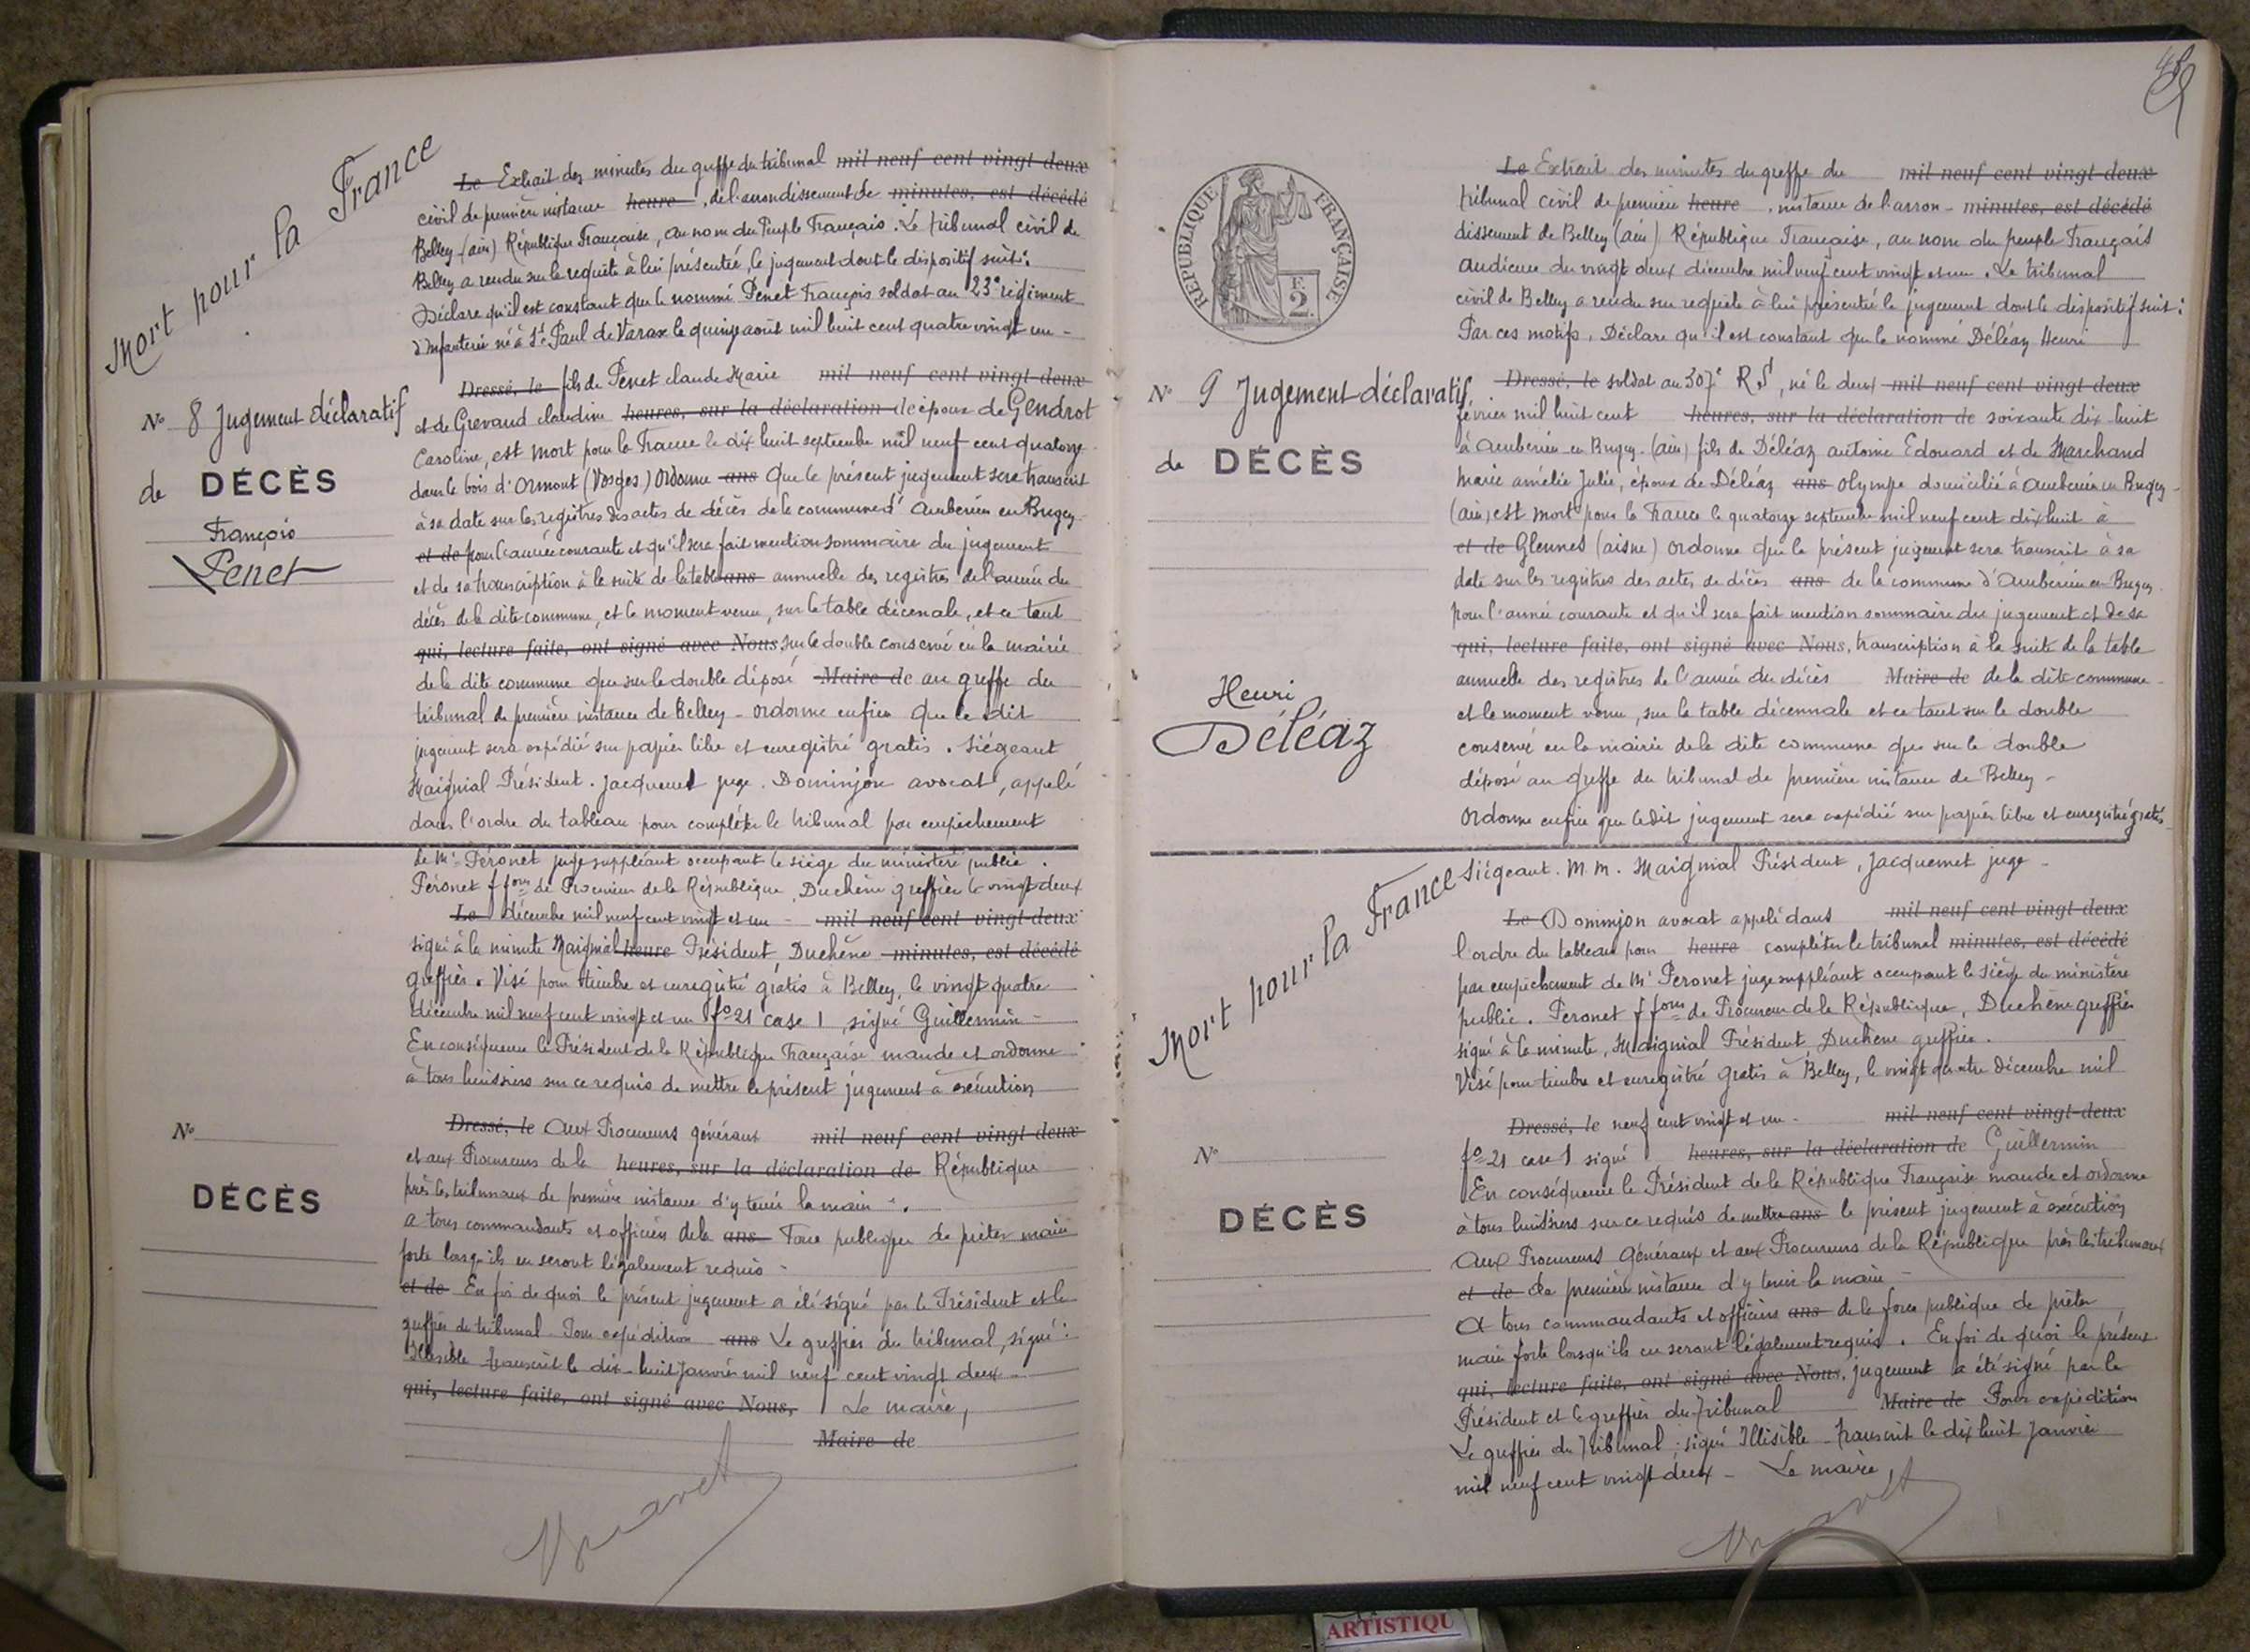 Mort pour la France
Le Extrait des minutes du greffe du tribunal mil neuf cent vingt-deux
civil de première instance heure, de l'arrondissement de minutes, est décédé
Belley (ain) République Française, au nom du Peuple Français. Le tribunal civil de
Belley a rendu sur la requête à lui présentée, le jugement dont le dispositif suit:
Déclare qu'il est constant que le nommé Penet François soldat au 23e régiment
d'Infanterie né à St Paul de Varax le quinze août mil huit cent quatre vingt un -
N° 8 Jugement déclaratif
de DÉCÈS
François
Penet
Dressé, le fils de Penet claude Marie mil neuf cent vingt-deux
et de Grevaud claudine heures, sur la déclaration de époux de Gendrot
Caroline, est mort pour la France le dix huit septembre mil neuf cent quatorze
dans le bois d'Ormont (Vosges) Ordonne ans que le présent jugement sera transcrit
à sa date sur les registres des actes de décès de la commune d'Ambérieu en Bugey
et de pour l'année courante et qu'il sera fait mention sommaire du jugement
et de sa transcription à la suite de la table ans annuelle des registres de l'année du
décès de la dite commune, et le moment venu, sur la table décenale, et ce tant
qui, lecture faite, ont signé avec Nous, sur le double conservé en la mairie
de la dite commune que sur le double déposé Maire de au greffe du
tribunal de première instance de Belley - ordonne enfin que le dit
jugement sera expédié sur papier libre et enregistré gratis. Siégeant
Maignial Président. Jacquemet juge. Dominjon avocat, appelé
dans l'ordre du tableau pour compléter le tribunal par empêchement
de Mr Péronet juge suppléant occupant le siège du ministère public.
Péronet f fons de Procureur de la République, Duchêne greffier le vingt deux
Le décembre mil neuf cent vingt et un - mil neuf cent vingt-deux
signé à la minute Maignial heure Président, Duchêne minutes, est décédé
greffier. Visé pour timbre et enregistré gratis à Belley, le vingt quatre
décembre mil neuf cent vingt et un fo 21 case 1, signé Guillermin -
En conséquence le Président de la République Française mande et ordonne
à tous huissiers sur ce requis de mettre le présent jugement à exécution
N°
DÉCÈS
Dressé, le aux Procureurs généraux mil neuf cent vingt-deux
et aux Procureurs de la heures, sur la déclaration de République
près les tribunaux de première instance d'y tenir la main -.
a tous commandants et officiers de la ans Force publique de prêter main
forte lorsqu'ils en seront légalement requis -
et de En foi de quoi le présent jugement a été signé par le Président et le
greffier du tribunal. Pour expédition ans Le greffier du tribunal, signé:
Illisible Transcrit le dix-huit janvier mil neuf cent vingt deux -
qui, lecture faite, ont signé avec Nous, Le maire,
Maire de
RÉPUBLIQUE FRANÇAISE
F.
2.
Le Extrait des minutes du greffe du mil neuf cent vingt-deux
tribunal civil de première heure, instance de l'arron- minutes, est décédé
dissement de Belley (ain) République Française, au nom du peuple Français
audience du vingt deux décembre mil neuf cent vingt et un. Le tribunal
civil de Belley a rendu sur requête à lui présentée le jugement dont le dispositif suit:
Par ces motifs, Déclare qu'il est constant que le nommé Déléaz Henri
N° 9 Jugement déclaratif
de DÉCÈS
Henri
Déléaz
Dressé, le soldat au 307e R.I, né le deux mil neuf cent vingt-deux
février mil huit cent heures, sur la déclaration de soixante dix-huit
à Ambérieu-en-Bugey-(ain) fils de Déléaz antoine Edouard et de Marchand
Marie amélie Julie, époux de Déléaz ans olympe domicilié à Ambérieu en Bugey -
(ain) est mort pour la France le quatorze septembre mil neuf cent dix huit à
et de Glennes (aisne) ordonne que le présent jugement sera transcrit à sa
date sur les registres des actes de décès ans de la commune d'Ambérieu-en-Bugey
pour l'année courante et qu'il sera fait mention sommaire du jugement et de sa
qui, lecture faite, ont signé avec Nous, transcription à la suite de la table
annuelle des registres de l'année du décès Maire de de la dite commune -
et le moment venu, sur la table décennale et ce tant sur le double
conservé en la mairie de la dite commune que sur le double
déposé au greffe du tribunal de première instance de Belley -
Ordonne enfin que le dit jugement sera expédié sur papier libre et enregistré gratis
Mort pour la France
Siégeant. M. M. Maignial Président, Jacquemet juge -
Le Dominjon avocat appelé dans mil neuf cent vingt-deux
l'ordre du tableau pour heure compléter le tribunal minutes, est décédé
par empêchement de Mr Peronet juge suppléant occupant le siège du ministère
public. Peronet f fons de Procureur de la République, Duchêne greffier
signé à la minute, Maignial Président Duchêne greffier.
Visé pour timbre et enregistré gratis à Belley, le vingt quatre décembre mil
N°
DÉCÈS
Dressé, le neuf cent vingt et un - mil neuf cent vingt-deux
fo 21 case 1 signé heures, sur la déclaration de Guillermin
En conséquence le Président de la République Française mande et ordonne
à tous huissiers sur ce requis de mettre ans le présent jugement à exécution
aux Procureurs Généraux et aux Procureurs de la République près les tribunaux
et de de première instance d'y tenir la main -
A tous commandants et officiers ans de la force publique de prêter
main forte lorsqu'ils en seront légalement requis. En foi de quoi le présent
qui, lecture faite, ont signé avec Nous, jugement a été signé par le
Président et le greffier du Tribunal Maire de Pour expédition
Le greffier du Tribunal, signé Illisible - Transcrit le dix huit Janvier
mil neuf cent vingt deux - Le maire,
ARTISTIQU